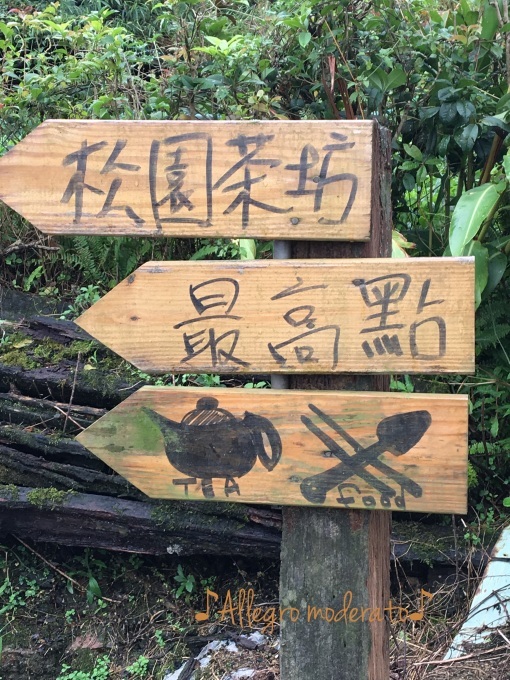 松園茶坊
最高點
TEA food
♪Allegro moderato♪